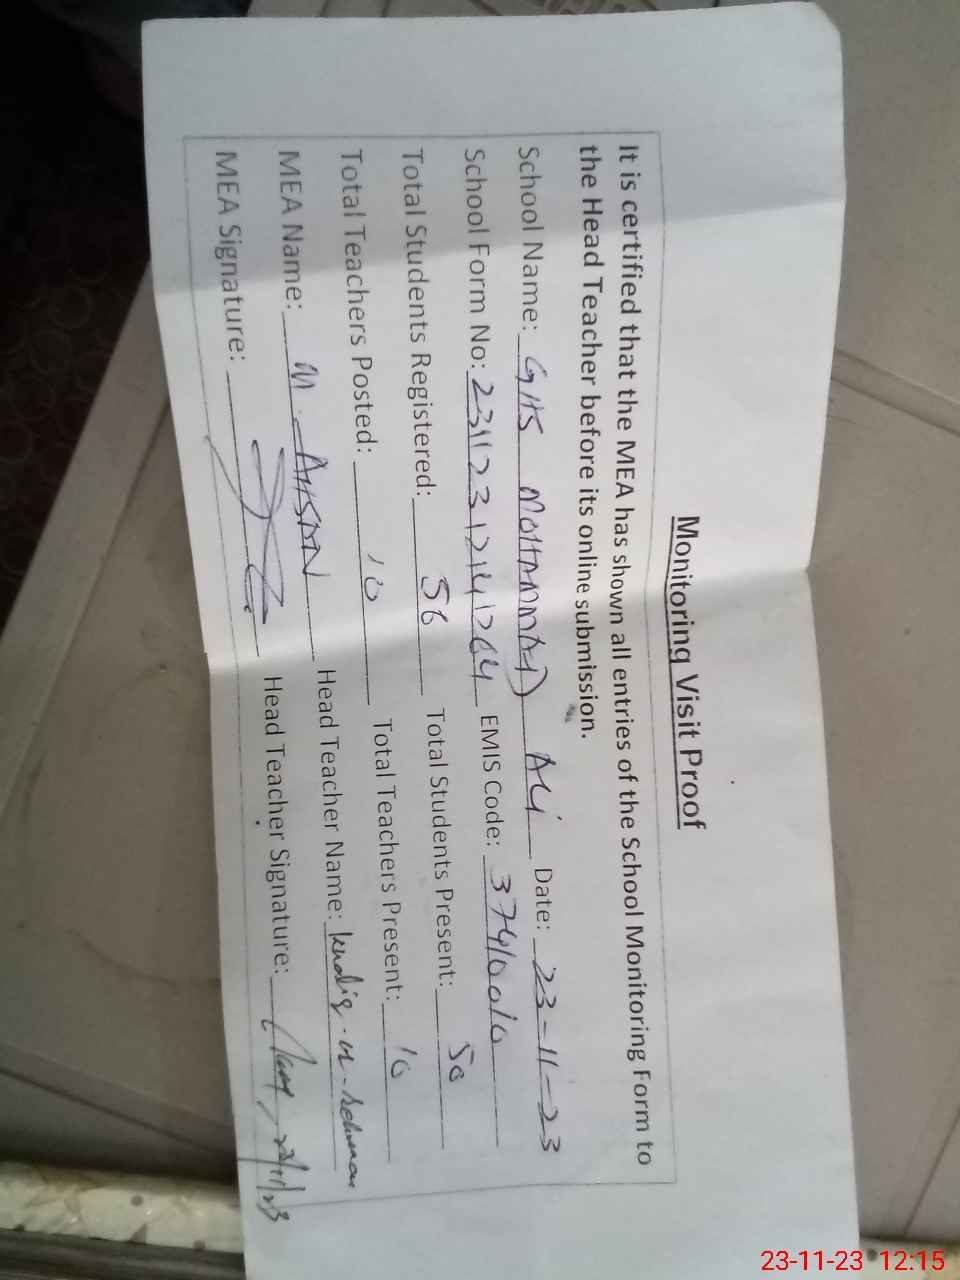 Monitoring Visit Proof
It is certified that the MEA has shown all entries of the School Monitoring Form to
the Head Teacher before its online submission.
School Name: GHS MOHAMMAD ALI Date: 23-11-23
School Form No: 23112312141264 EMIS Code: 37410010
Total Students Registered: 56 Total Students Present: 50
Total Teachers Posted: 10 Total Teachers Present: 10
MEA Name: M. AHSAN Head Teacher Name:
MEA Signature: Head Teacher Signature:
23-11-23 12:15